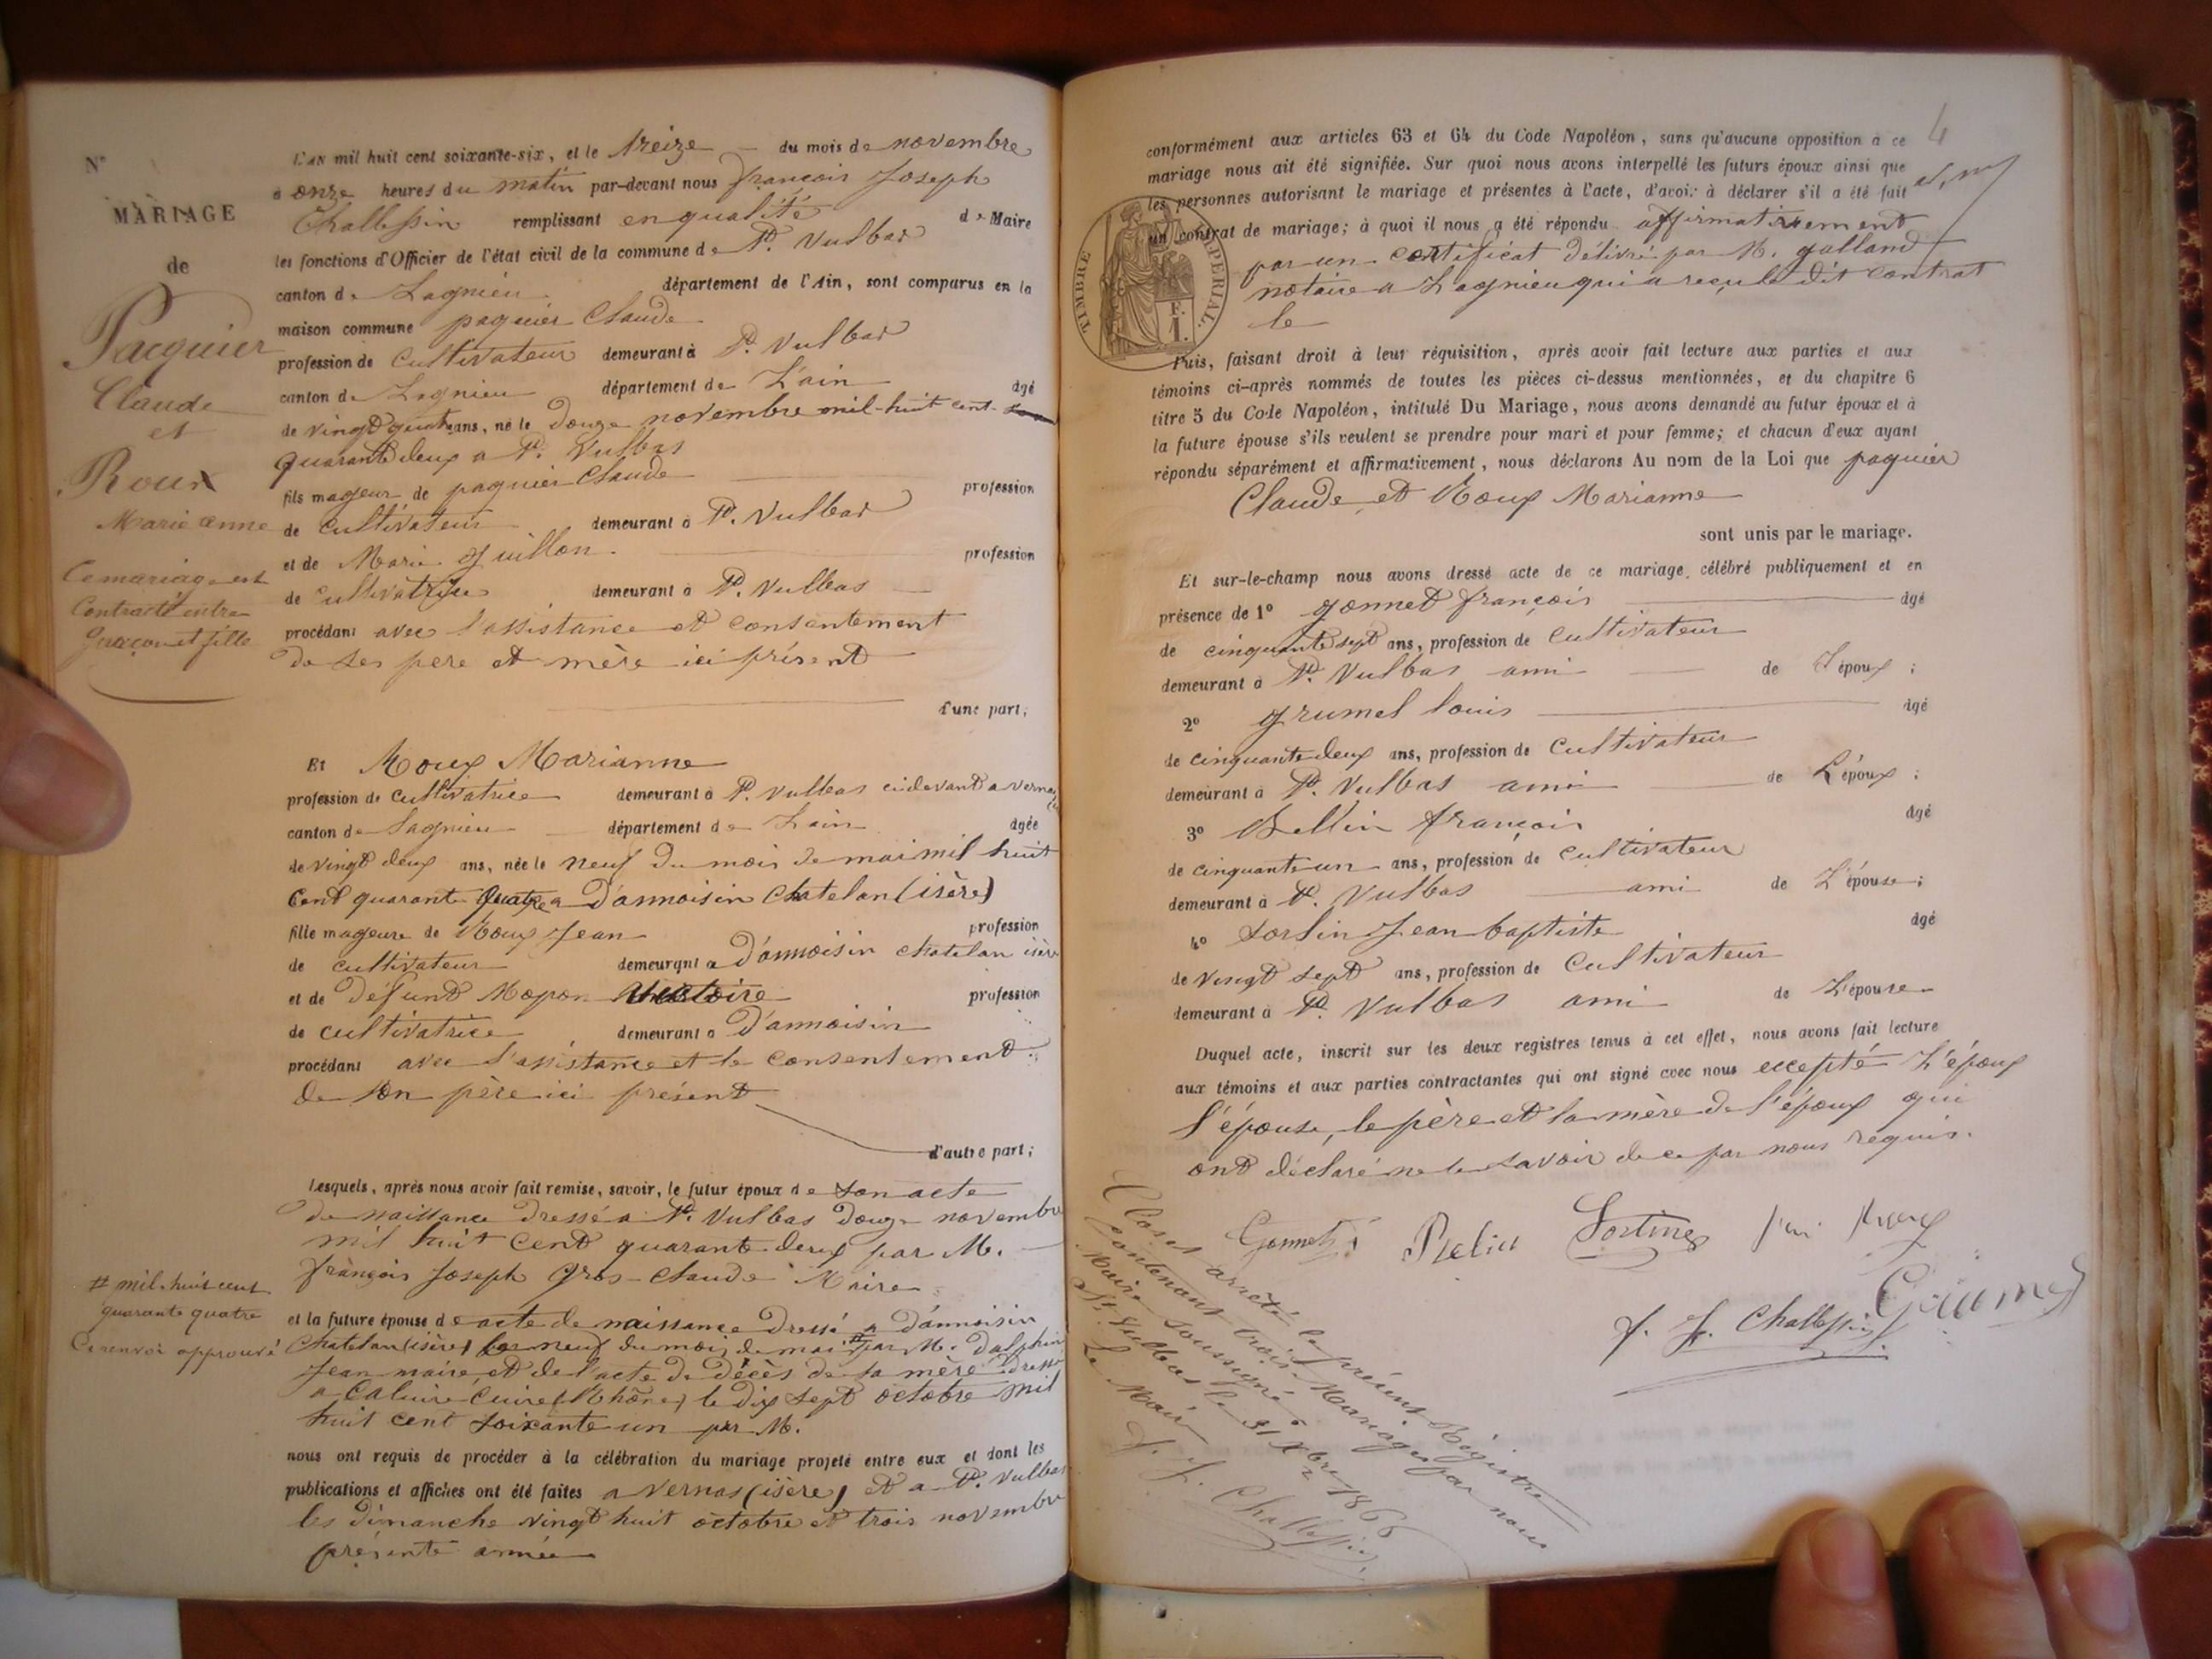 N°
MARIAGE
de
Pacquier
Claude
et
Roux
Marie anne
Ce mariage est
Contracté entre
Garçon et fille
L'AN mil huit cent soixante-six, et le treize du mois de novembre
à onze heures du matin par-devant nous françois Joseph
Challepin remplissant en qualité de Maire
les fonctions d'Officier de l'état civil de la commune de St. Vulbas
canton de Lagnieu département de l'Ain, sont comparus en la
maison commune paquier Claude
profession de Cultivateur demeurant à St. Vulbas
canton de Lagnieu département de L'ain âgé
de vingt quatre ans, né le douze novembre mil-huit cent
quarante deux a St. Vulbas
fils majeur de paquier Claude profession
de cultivateur demeurant à St. Vulbas
et de Marie guillon profession
de cultivatrice demeurant à St. Vulbas
procédant avec l'assistance et consentement
de ses pere et mère ici présent
d'une part;
Et Roux Marianne
profession de cultivatrice demeurant à St. Vulbas cidevant a vernas
canton de Lagnieu département de Lain âgée
de vingt deux ans, née le neuf du mois de mai mil huit
Cent quarante quatre a D'annoisin Chatelan (isère)
fille majeure de Roux Jean profession
de cultivateur demeurant à D'annoisin chatelan isère
et de défunt profession
de cultivatrice demeurant à D'annoisin
procédant avec l'assistance et le consentement
de son père ici présent
d'autre part;
Lesquels, après nous avoir fait remise, savoir, le futur époux de son acte
de naissance dressé a St. Vulbas douze novembre
mil huit cent quarante deux par M.
françois Joseph Gros-Claude Maire
et la future épouse de acte de naissance dressé a D'annoisin
Chatelan (isère) le neuf du mois de mai # par M. Dalphin
Jean maire et de l'acte de décès de sa mère dressé
a Caluire Cuire (Rhône) le dix sept octobre mil
huit cent soixante un par M.
# mil-huit cent
quarante quatre
Ce renvoi approuvé
nous ont requis de procéder à la célébration du mariage projeté entre eux et dont les
publications et affiches ont été faites a vernas (isère) et a St. Vulbas
les dimanche vingt huit octobre et trois novembre
présente année
4
conformément aux articles 63 et 64 du Code Napoléon, sans qu'aucune opposition à ce
mariage nous ait été signifiée. Sur quoi nous avons interpellé les futurs époux ainsi que
les personnes autorisant le mariage et présentes à l'acte, d'avoir à déclarer s'il a été fait
un contrat de mariage; à quoi il nous a été répondu affirmativement
par un certificat délivré par M. galland
notaire a Lagnieu qui a reçu le dit contrat
le
TIMBRE IMPERIAL.
F.
1.
Puis, faisant droit à leur réquisition, après avoir fait lecture aux parties et aux
témoins ci-après nommés de toutes les pièces ci-dessus mentionnées, et du chapitre 6
titre 5 du Code Napoléon, intitulé Du Mariage, nous avons demandé au futur époux et à
la future épouse s'ils veulent se prendre pour mari et pour femme; et chacun d'eux ayant
répondu séparément et affirmativement, nous déclarons Au nom de la Loi que paquier
Claude et Roux Marianne
sont unis par le mariage.
Et sur-le-champ nous avons dressé acte de ce mariage, célébré publiquement et en
présence de 1° gonnet françois âgé
de cinquante sept ans, profession de Cultivateur
demeurant à St. Vulbas ami de l'époux;
2° grumel louis âgé
de cinquante deux ans, profession de Cultivateur
demeurant à St. Vulbas ami de L'époux;
3° Bellin françois âgé
de cinquante un ans, profession de cultivateur
demeurant à St. Vulbas ami de L'épouse;
4° Sorlin Jean baptiste âgé
de vingt sept ans, profession de Cultivateur
demeurant à St. Vulbas ami de L'épouse
Duquel acte, inscrit sur les deux registres tenus à cet effet, nous avons fait lecture
aux témoins et aux parties contractantes qui ont signé avec nous excepté L'époux
l'épouse, le père et la mère de l'époux qui
ont déclaré ne le savoir de ce par nous requis.
Gonnet
J. J. Challepin
Clos et arrêté le présent Régistre
Contenant trois Mariages par nous
Maire soussigné à
St Vulbas le 31 Xbre 1866
Le Maire
J. J. Challepin